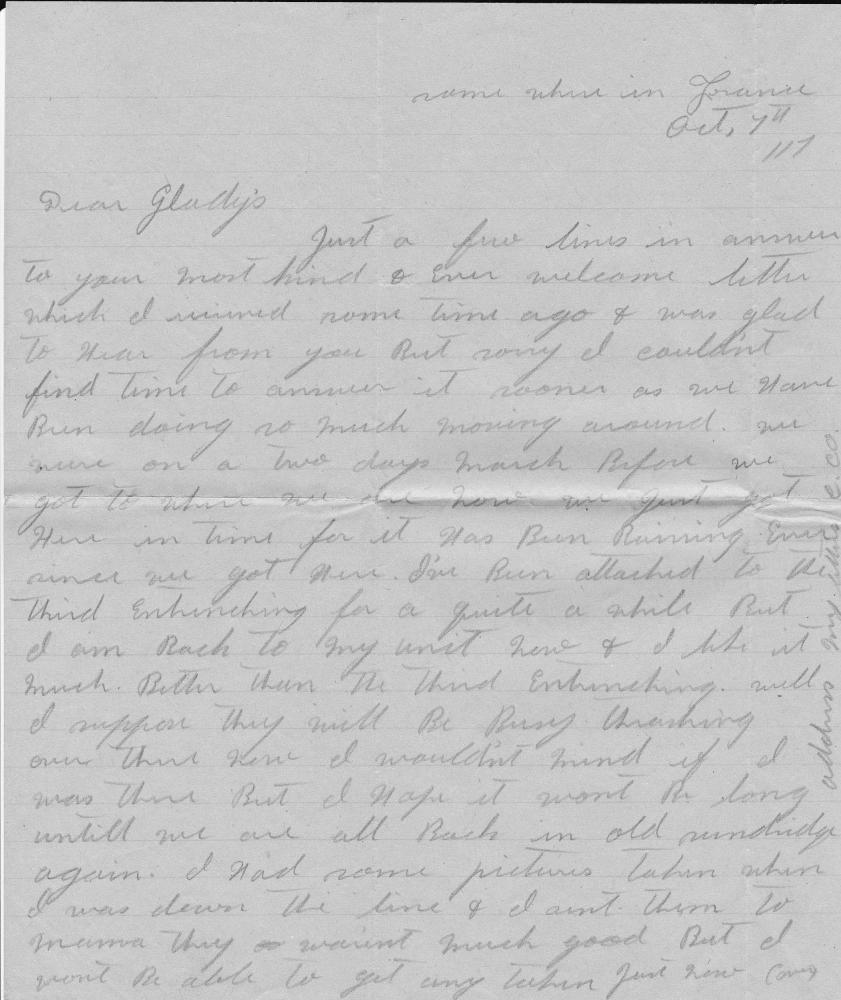 some where in France
Oct, 7th
/17
Dear Gladys
Just a few lines in answer
to your most kind & Ever welcome letter
which I recieved some time ago & was glad
to Hear from you But sorry I couldn't
find time to answer it sooner as we Have
Been doing so much moving around. we
were on a two days march Before we
got to where we are now we just got
Here in time for it Has Been Raining Ever
since we got Here. I've Been attached to the
third Entrenching for a quite a while But
I am Back to my unit now & I like it
much. Better than the third Entrenching. well
I suppose they will Be Busy thrashing
over there now I wouldn't mind if I
was there But I Hope it wont Be long
untill we are all Back in old sundridge
again. I Had some pictures taken when
I was down the line & I sent them to
mama they warent much good But I
wont Be able to get any taken just now (over
address my letters C. Co.